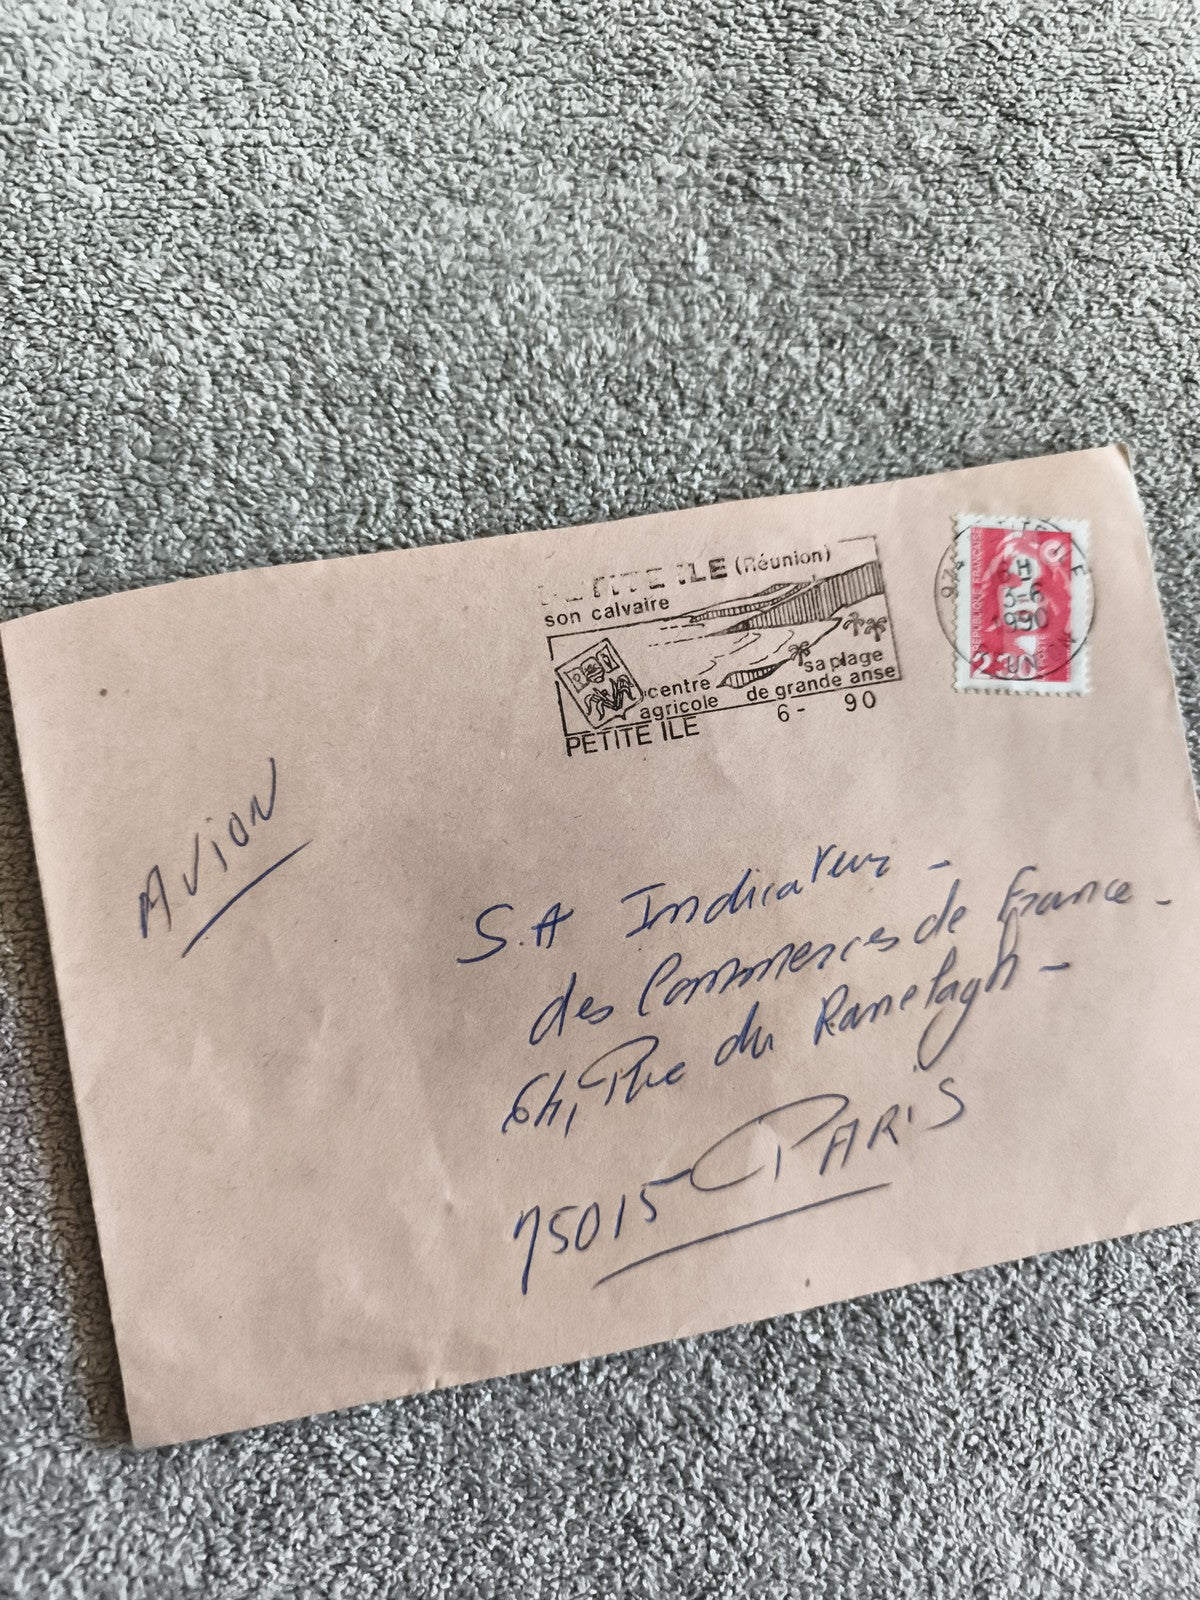 PETITE ILE (Réunion)
son calvaire
centre
agricole
sa plage
de grande anse
PETITE ILE
6- 90
RÉPUBLIQUE FRANÇAISE
1990
2,30
AVION
S.A Indicateur -
des Commerces de France -
64, Rue du Ranelagh -
75015 PARIS